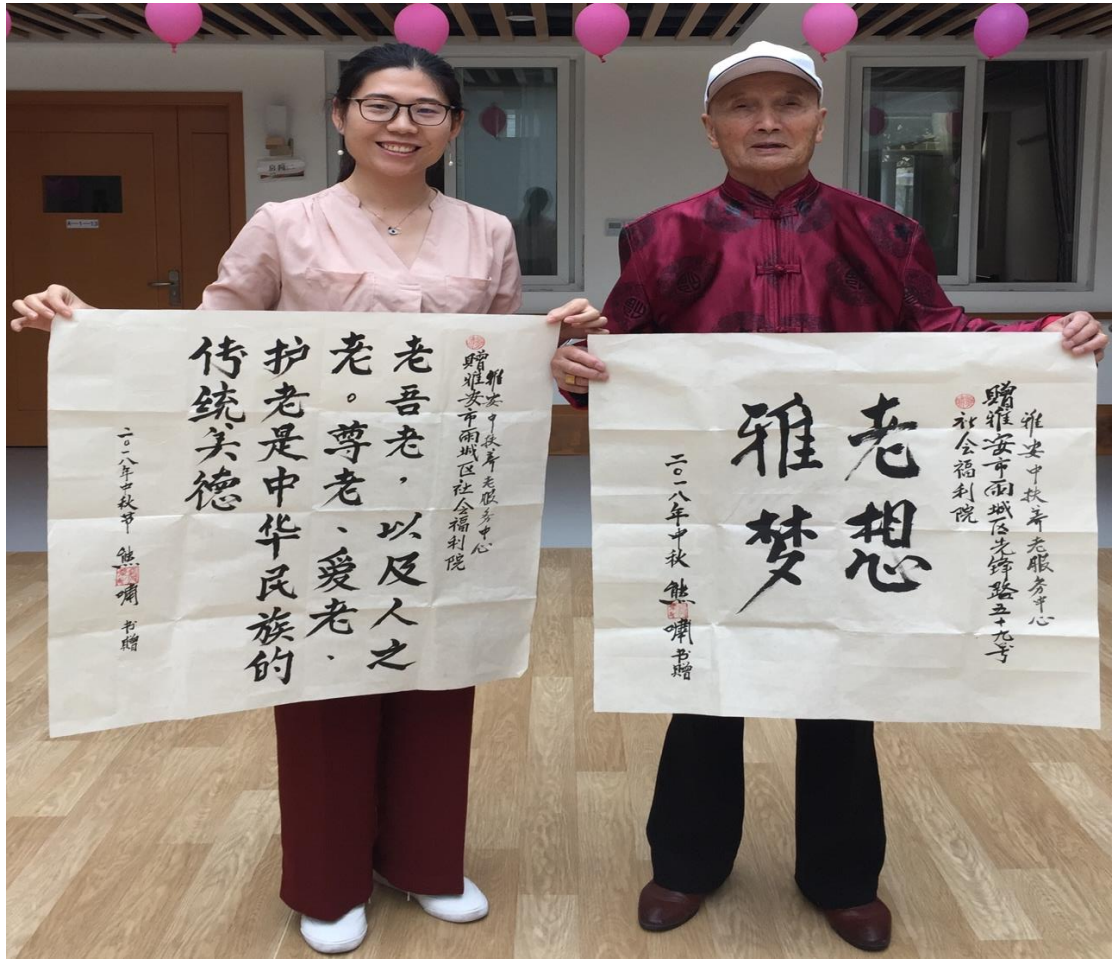 雅安中扶养老服务中心
赠雅安市雨城区社会福利院
老吾老，以及人之
老。尊老、爱老、
护老是中华民族的
传统美德
二〇一八年中秋节 熊啸 书赠
雅安中扶养老服务中心
赠雅安市雨城区先锋路五十九号
社会福利院
老想
雅梦
二〇一八年中秋 熊啸书赠